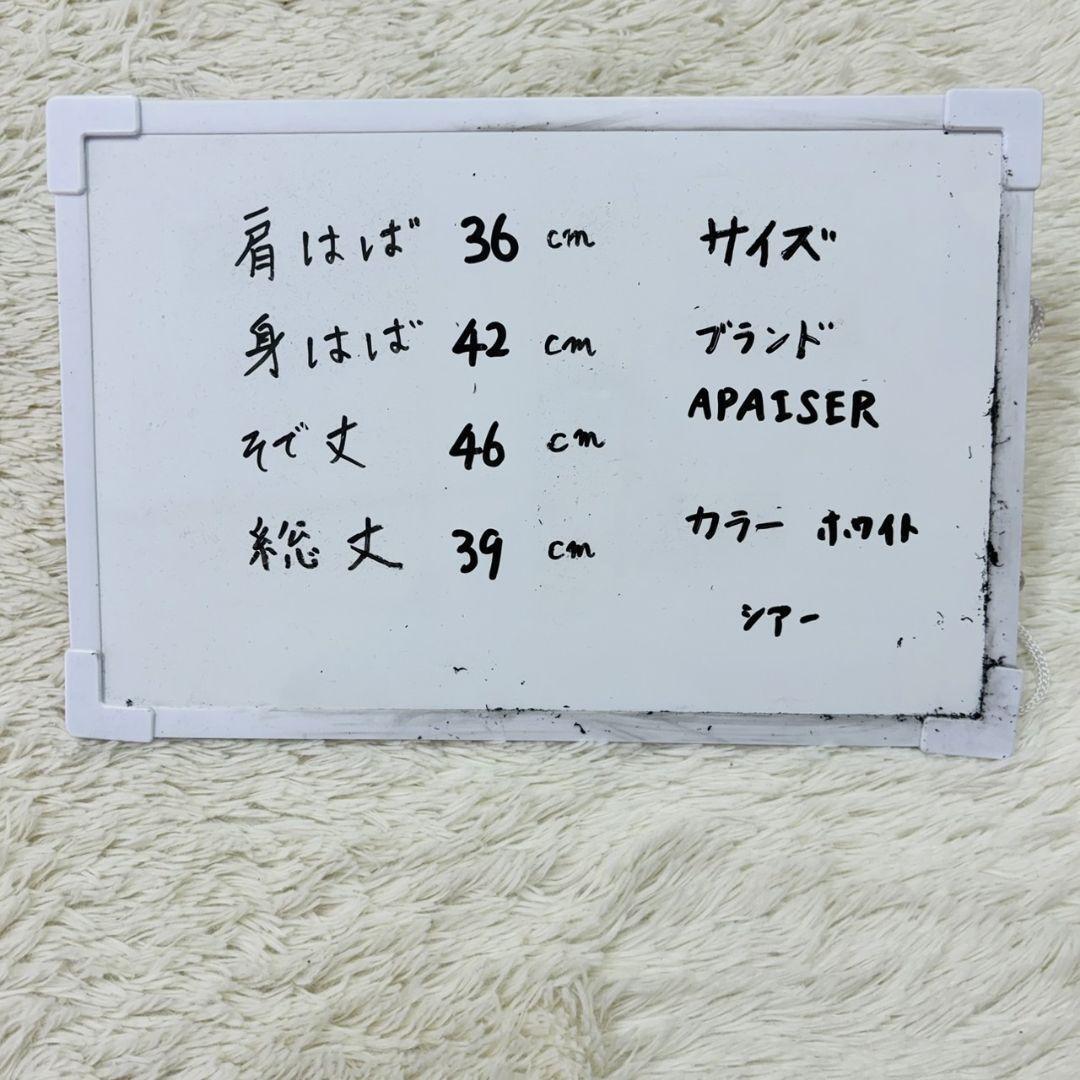 肩はば 36 cm
身はば 42 cm
そで丈 46 cm
総丈 39 cm
サイズ
ブランド
APAISER
カラー ホワイト
シアー